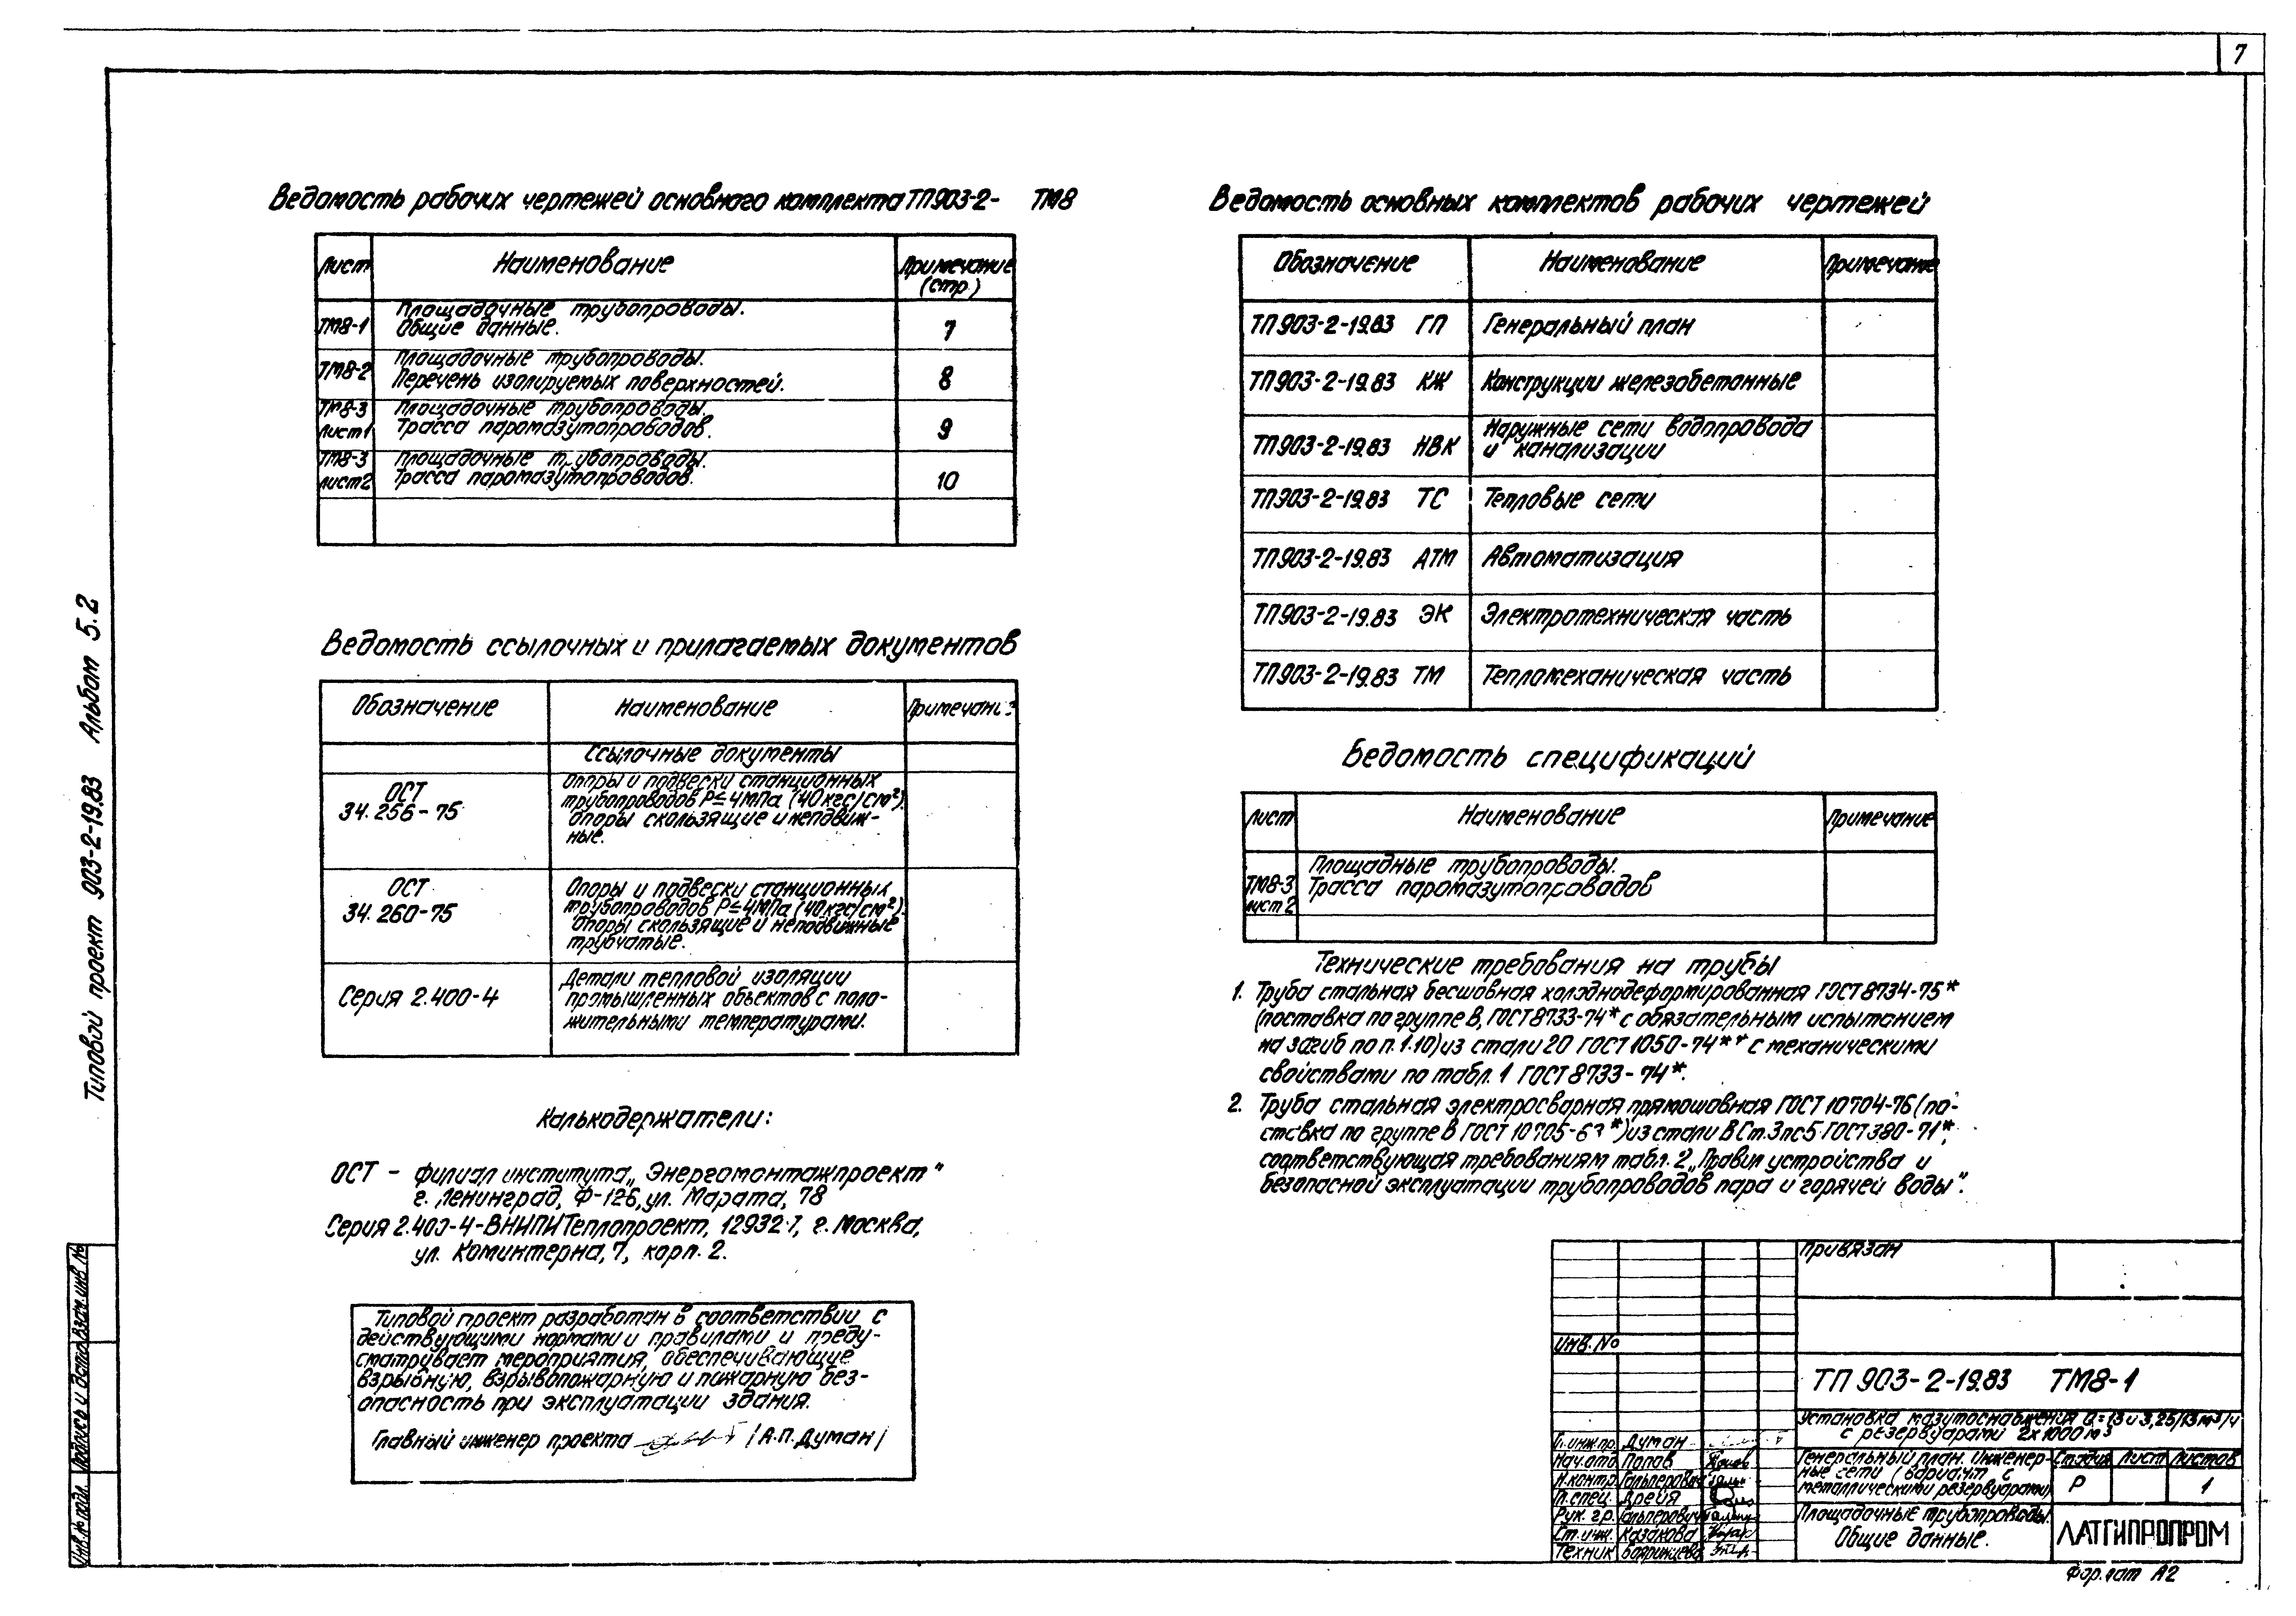 7
Типовой проект 903-2-19.83 Альбом 5.2
Ведомость рабочих чертежей основного комплекта ТП903-2- ТМ8
Лист Наименование Примечание (стр.)
ТМ8-1 Площадочные трубопроводы.
Общие данные. 7
ТМ8-2 Площадочные трубопроводы.
Перечень изолируемых поверхностей. 8
ТМ8-3 Площадочные трубопроводы.
Лист1 Трасса паромазутопроводов. 9
ТМ8-3 Площадочные трубопроводы.
лист2 Трасса паромазутопроводов. 10
Ведомость ссылочных и прилагаемых документов
Обозначение Наименование Примечание
Ссылочные документы
ОСТ
34.256-75
Опоры и подвески станционных
трубопроводов Р≤4МПа (40кгс/см²).
Опоры скользящие и неподвиж-
ные.
ОСТ
34.260-75
Опоры и подвески станционных
трубопроводов Р≤4МПа (40кгс/см²).
Опоры скользящие и неподвижные
трубчатые.
Серия 2.400-4
Детали тепловой изоляции
промышленных объектов с поло-
жительными температурами.
Калькодержатели:
ОСТ - филиал института „Энергомонтажпроект"
г. Ленинград, Ф-126, ул. Марата, 78
Серия 2.400-4-ВНИПИТеплопроект, 12932·7, г. Москва,
ул. Коминтерна, 7, корп. 2.
Типовой проект разработан в соответствии с
действующими нормами и правилами и преду-
сматривает мероприятия, обеспечивающие
взрывную, взрывопожарную и пожарную без-
опасность при эксплуатации здания.
Главный инженер проекта /А.П.Думан/
Ведомость основных комплектов рабочих чертежей
Обозначение Наименование Примечание
ТП903-2-19.83 ГП Генеральный план
ТП903-2-19.83 КЖ Конструкции железобетонные
ТП903-2-19.83 НВК Наружные сети водопровода
и канализации
ТП903-2-19.83 ТС Тепловые сети
ТП903-2-19.83 АТМ Автоматизация
ТП903-2-19.83 ЭК Электротехническая часть
ТП903-2-19.83 ТМ Тепломеханическая часть
Ведомость спецификаций
Лист Наименование Примечание
ТМ8-3
лист2
Площадные трубопроводы.
Трасса паромазутопроводов
Технические требования на трубы
1. Труба стальная бесшовная холоднодеформированная ГОСТ8734-75*
(поставка по группе В, ГОСТ8733-74* с обязательным испытанием
на загиб по п. 1.10) из стали 20 ГОСТ1050-74** с механическими
свойствами по табл. 1 ГОСТ8733-74*.
2. Труба стальная электросварная прямошовная ГОСТ10704-76 (по-
ставка по группе В ГОСТ 10705-63*) из стали ВСт.3пс5 ГОСТ380-71*,
соответствующая требованиям табл. 2 „Правил устройства и
безопасной эксплуатации трубопроводов пара и горячей воды".
Привязан
Инв. №
ТП 903-2-19.83 ТМ8-1
Установка мазутоснабжения Q=13 и 3,25/13 м³/ч
с резервуарами 2х1000м³
Генеральный план. Инженер-
ные сети (вариант с
металлическими резервуарами)
Стадия Лист Листов
Р 1
Площадочные трубопроводы.
Общие данные.
ЛАТГИПРОПРОМ
Гл.инж.пр. Думан
Нач.отд. Попов
Н.контр. Гальперович
Гл.спец. Дрейя
Рук. гр. Гальперович
Ст. инж. Казакова
Техник
Формат А2
Инв.№ подл. Подпись и дата Взам.инв.№